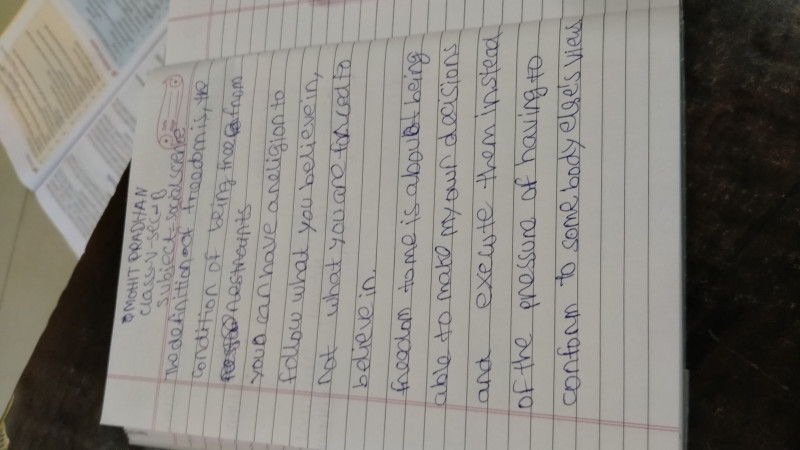 MOHIT PRADHAN
class-V-sec-B
subject-social science
The definition of freedom is, the
condition of being free from
restraints
you can have a religion to
follow what you believe in,
Not what you are forced to
believe in.
freedom to me is about being
able to make my own decisions
and execute them instead
of the pressure of having to
conform to somebody else's view